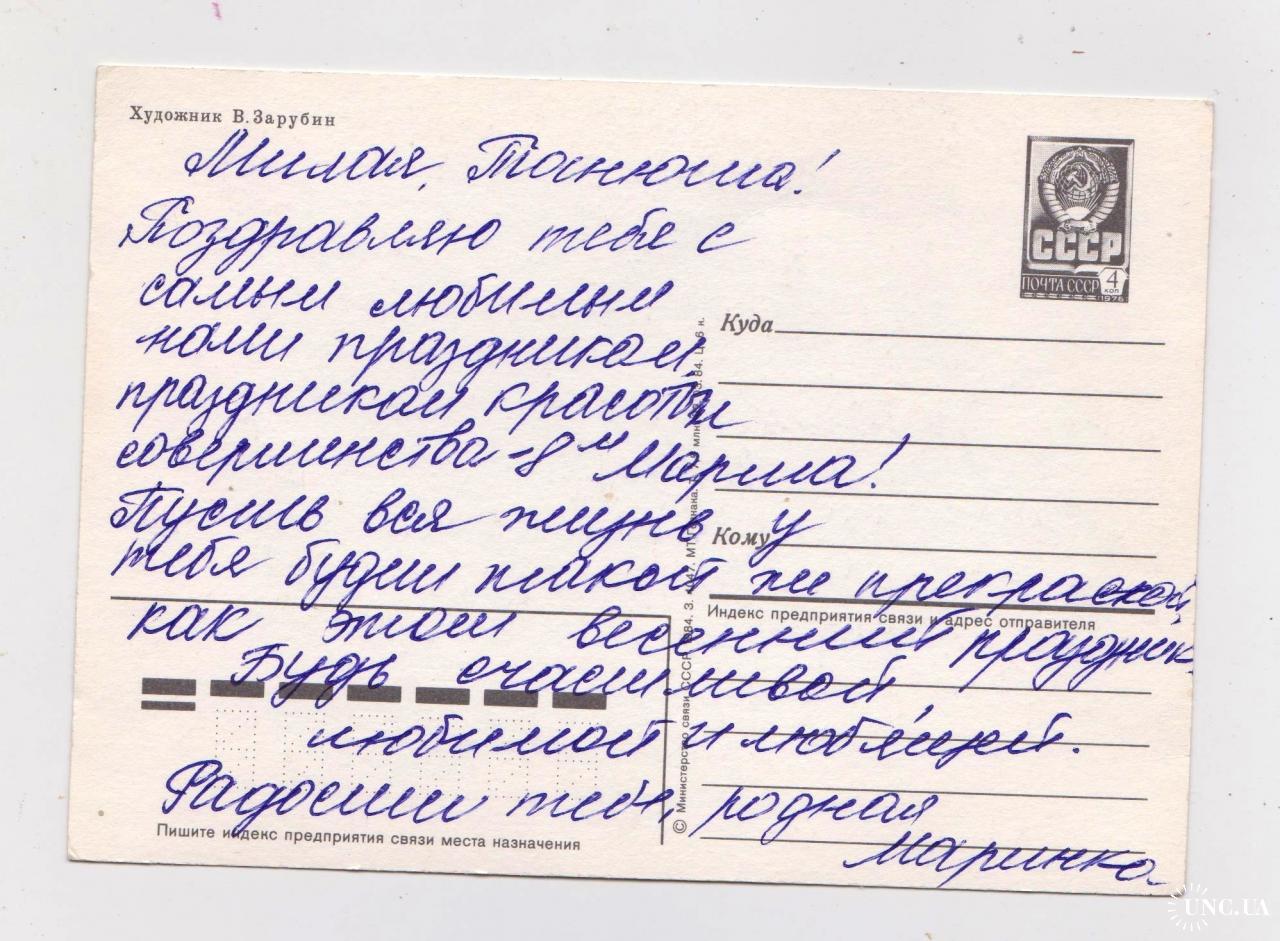 Художник В. Зарубин
Милая, Танюша!
Поздравляю тебя с
самым любимым
нами праздником,
праздником красоты и
совершенства - 8м Марта!
Пусть вся жизнь у
тебя будет такой же прекрасной,
как этот весенний праздник.
Будь счастливой
любимой и любящей.
Радости тебе, родная
Маринка
СССР
ПОЧТА СССР 4 коп
1976
Куда
Кому
Индекс предприятия связи и адрес отправителя
© Министерство связи СССР
Пишите индекс предприятия связи места назначения
UNC.UA